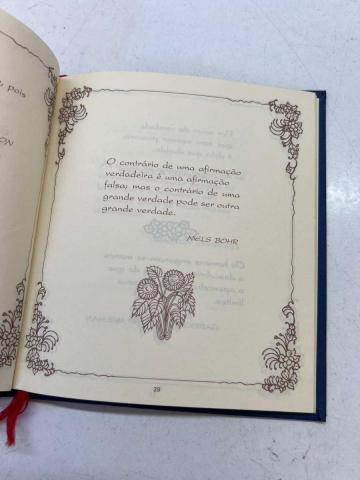 , pois
O contrário de uma afirmação
verdadeira é uma afirmação
falsa; mas o contrário de uma
grande verdade pode ser outra
grande verdade.
NIELS BOHR
29